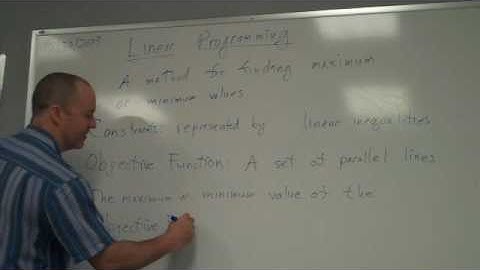 Linear Programming
A method for finding maximum
or minimum values
Constraints: represented by linear inequalities
Objective Function: A set of parallel lines
The maximum or minimum value of the
Objective